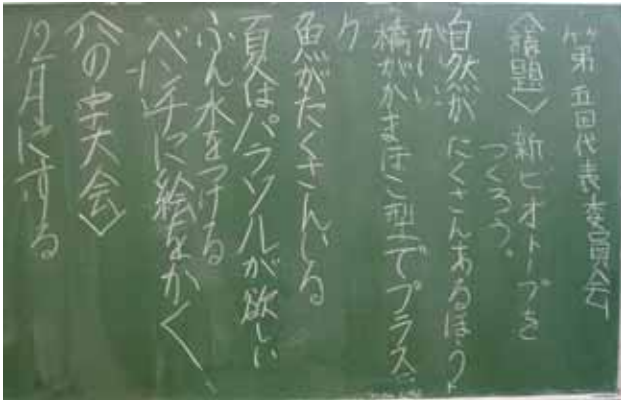 第五回代表委員会
〈議題〉 新ビオトープを
つくろう。
自然がたくさんあるほう
がいい
橋がかまぼこ型でプラスチ
ク
魚がたくさんいる
夏はパラソルが欲しい
ふん水をつける
ベンチに絵をかく、
〈八の字大会〉
12月にする